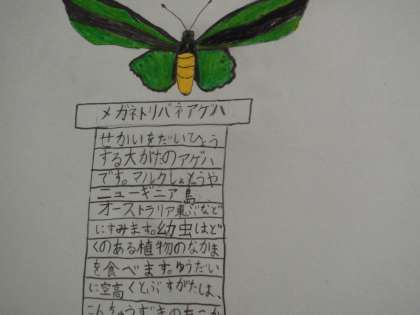 メガネトリバネアゲハ
せかいをだいひょう
する大がたのアゲハ
です。マルクしょとうや
ニューギニア島
オーストラリア東ぶなど
にすみます。幼虫はど
くのある植物のなかま
を食べます。ゆうだい
に空高くとぶすがたは、
こんちゅうずきのたこか